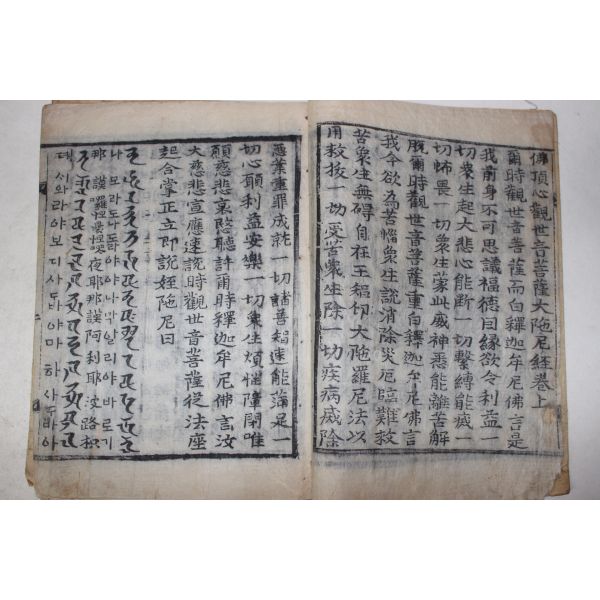 佛頂心觀世音菩薩大陁尼經卷上
爾時觀世音菩薩而白釋迦牟尼佛言是
我前身不可思議福德因緣欲令利益一
切衆生起大悲心能斷一切繫縛能滅一
切怖畏一切衆生蒙此威神悉能離苦解
脫爾時觀世音菩薩重白釋迦牟尼佛言
我今欲為苦惱衆生說消除災厄臨難救
苦衆生無碍自在王智切大陁羅尼法以
用救拔一切受苦衆生除一切疾病滅除
惡業重罪成就一切諸善種智速能滿足一
切心願利益安樂一切衆生煩惱障閉唯
願慈悲哀愍聽許爾時釋迦牟尼佛言汝
大慈悲宣應速說時觀世音菩薩從法座
起合掌正立即說姪陁尼曰
나 모 라 도 나 야 야 나 막 알 리 야 바 로 기
那 謨 羅 夜 耶 那 謨 阿 利 耶 波 路 积
뎨 시 와 라 야 보 디 사 야 마 하 사